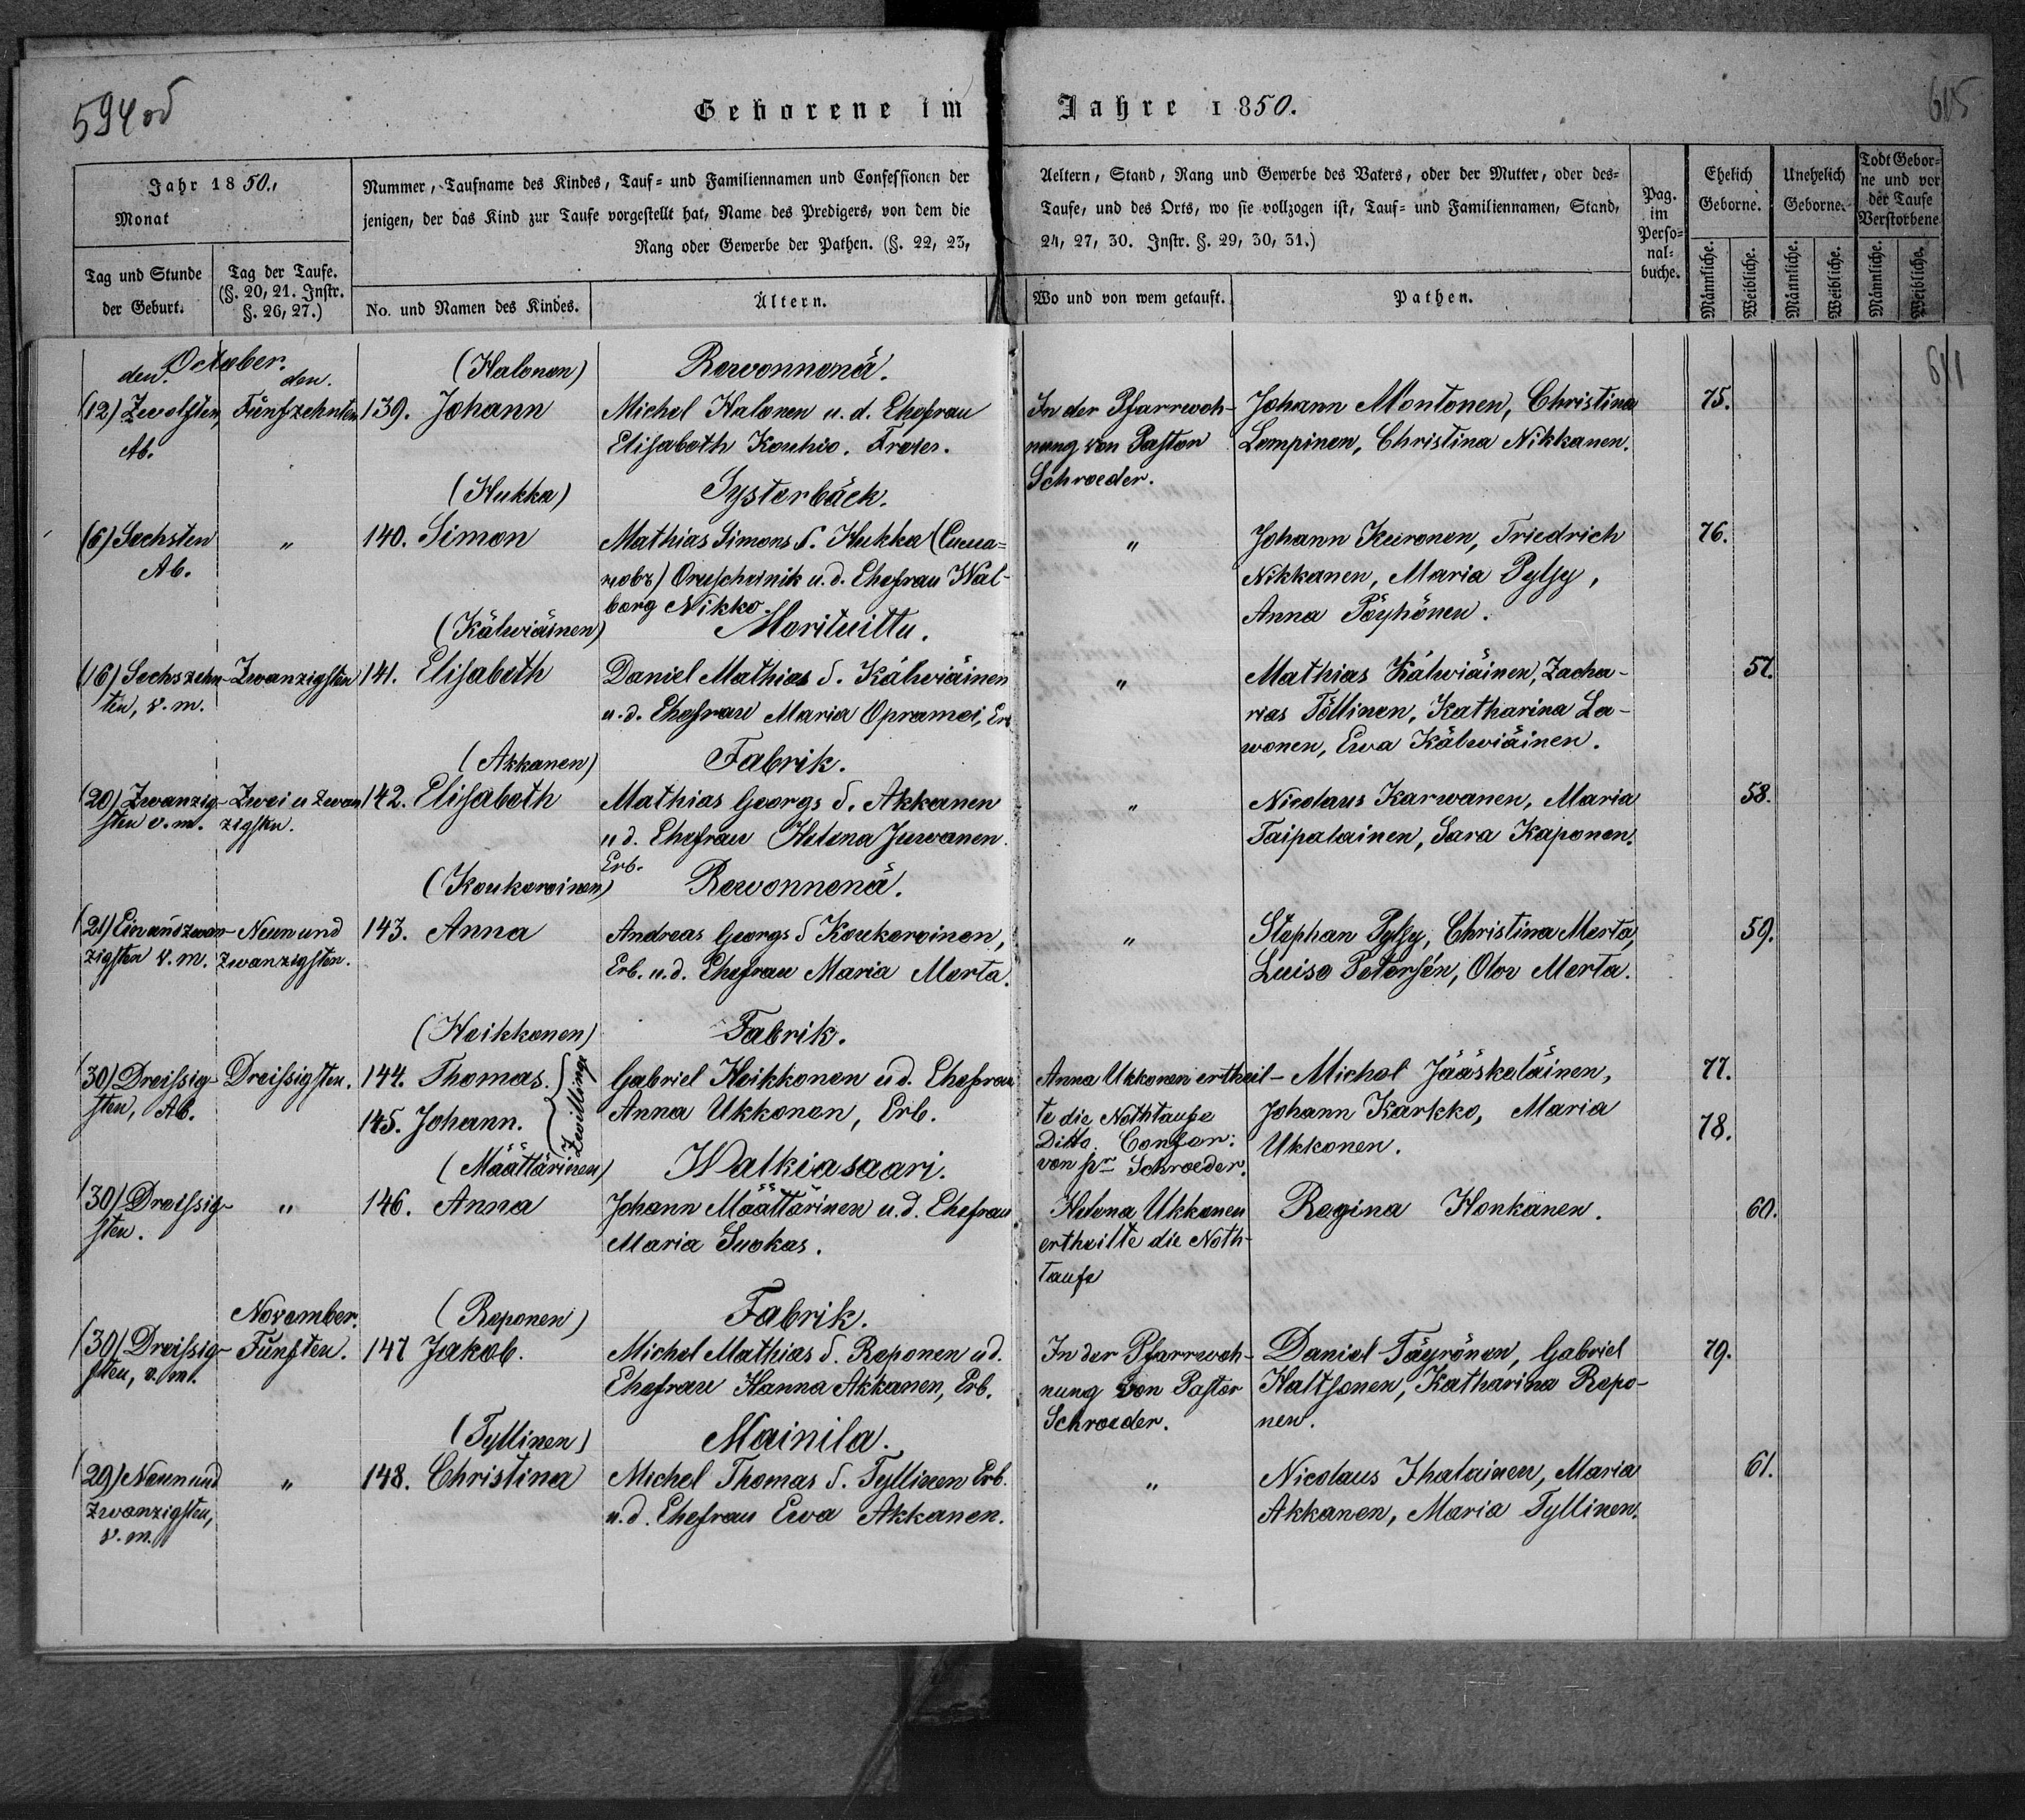 594 od
615
Geborene im Jahre 1850.
Jahr 1850.,
Monat
Tag und Stunde
der Geburt.
Tag der Taufe.
(§. 20, 21. Instr.
§. 26, 27.)
Nummer, Taufname des Kindes, Tauf- und Familiennamen und Confessionen der
jenigen, der das Kind zur Taufe vorgestellt hat, Name des Predigers, von dem die
Rang oder Gewerbe der Pathen. (§. 22, 23,
No. und Namen des Kindes.
Ältern.
Aeltern, Stand, Rang und Gewerbe des Vaters, oder der Mutter, oder des-
Taufe, und des Orts, wo sie vollzogen ist, Tauf- und Familiennamen, Stand,
24, 27, 30. Instr. §. 29, 30, 31.)
Wo und von wem getauft.
Pathen.
Pag.
im
Perso-
nal-
buche.
Ehelich
Geborne.
Unehelich
Geborne.
Todt Gebor-
ne und vor
der Taufe
Verstorbene
Männliche.
Weibliche.
Männliche.
Weibliche.
Männliche.
Weibliche.
611
October.
den.
den.
(Halonen)
Rowonnenä.
(12) Zwölften,
Ab.
Fünfzehnten
139. Johann
Michel Halonen u. d. Ehefrau
Elisabeth Kouhio.
In der Pfarrwoh-
nung von Pastor
Schroeder.
Johann Montonen, Christina
Lempinen, Christina Nikkanen.
75.
(Hukka)
Systerbäck.
(6) Sechsten
Ab.
"
140. Simon
Mathias Simons S. Hukka
Oruscheinik u. d. Ehefrau Wal-
borg Nikko.
"
Johann Kuronen, Friedrich
Nikkanen, Maria Pylsy,
Anna Pöyhönen.
76.
(Kälwiäinen)
Morituittu.
(16) Sechszehn-
ten, v. m.
Zwanzigsten
141. Elisabeth
Daniel Mathias S. Kälwiäinen
u. d. Ehefrau Maria Opramoi, Erb
"
Mathias Kälwiäinen, Zacha-
rias Töllinen, Katharina La-
wonen, Ewa Kälwiäinen.
57.
(Akkanen)
Fabrik.
(20) Zwanzig-
sten v. m.
Zwei u Zwan
zigsten.
142. Elisabeth
Mathias Georgs S. Akkanen
u d. Ehefrau Helena Juwanen
Erb.
"
Nicolaus Karwanen, Maria
Taipalainen, Sara Kaponen.
58.
(Koukoroinen)
Rowonnenä.
(21) Ein und zwan-
zigsten v. m.
Neun und
zwanzigsten.
143. Anna
Andreas Georgs S Koukoroinen,
Erb. u. d. Ehefrau Maria Merta.
"
Stephan Pylsy, Christina Merta,
Luise Petersén, Olov Merta.
59.
(Heikkonen)
Fabrik.
(30) Dreissig-
sten, Ab.
Dreissigsten.
144. Thomas.
145. Johann.
Zwillinge
Gabriel Heikkonen u d. Ehefrau
Anna Ukkonen, Erb.
Anna Ukkonen ertheil-
te die Nothtaufe
Ditto. Confor:
von pr Schroeder.
Michel Jääskeläinen,
Johann Karkko, Maria
Ukkonen.
77.
78.
(Määttärinen)
Walkiasaari.
(30) Dreissig-
sten.
"
146. Anna
Johann Määttärinen u. d. Ehefrau
Maria Suokas.
Helena Ukkonen
ertheilte die Noth-
taufe
Regina Honkanen.
60.
November.
(Reponen)
Fabrik.
(30) Dreissig-
sten, v. m.
Fünften.
147 Jakob.
Michel Mathias S. Reponen u d.
Ehefrau Hanna Akkanen, Erb.
In der Pfarrwoh-
nung von Pastor
Schroeder.
Daniel Täyrönen, Gabriel
Haltsonen, Katharina Repo-
nen.
79.
(Tyllinen)
Mainila.
(29) Neun und
Zwanzigsten,
v. m.
"
148. Christina
Michel Thomas S. Tyllinen Erb.
u. d. Ehefrau Ewa Akkanen.
"
Nicolaus Ihalainen, Maria
Akkanen, Maria Tyllinen.
61.